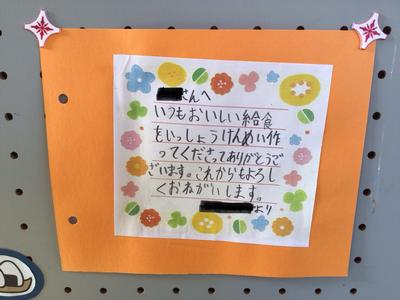 さんへ
いつもおいしい給食
をいっしょうけんめい作
ってくださってありがとうご
ざいます。これからもよろし
くおねがいします。
より